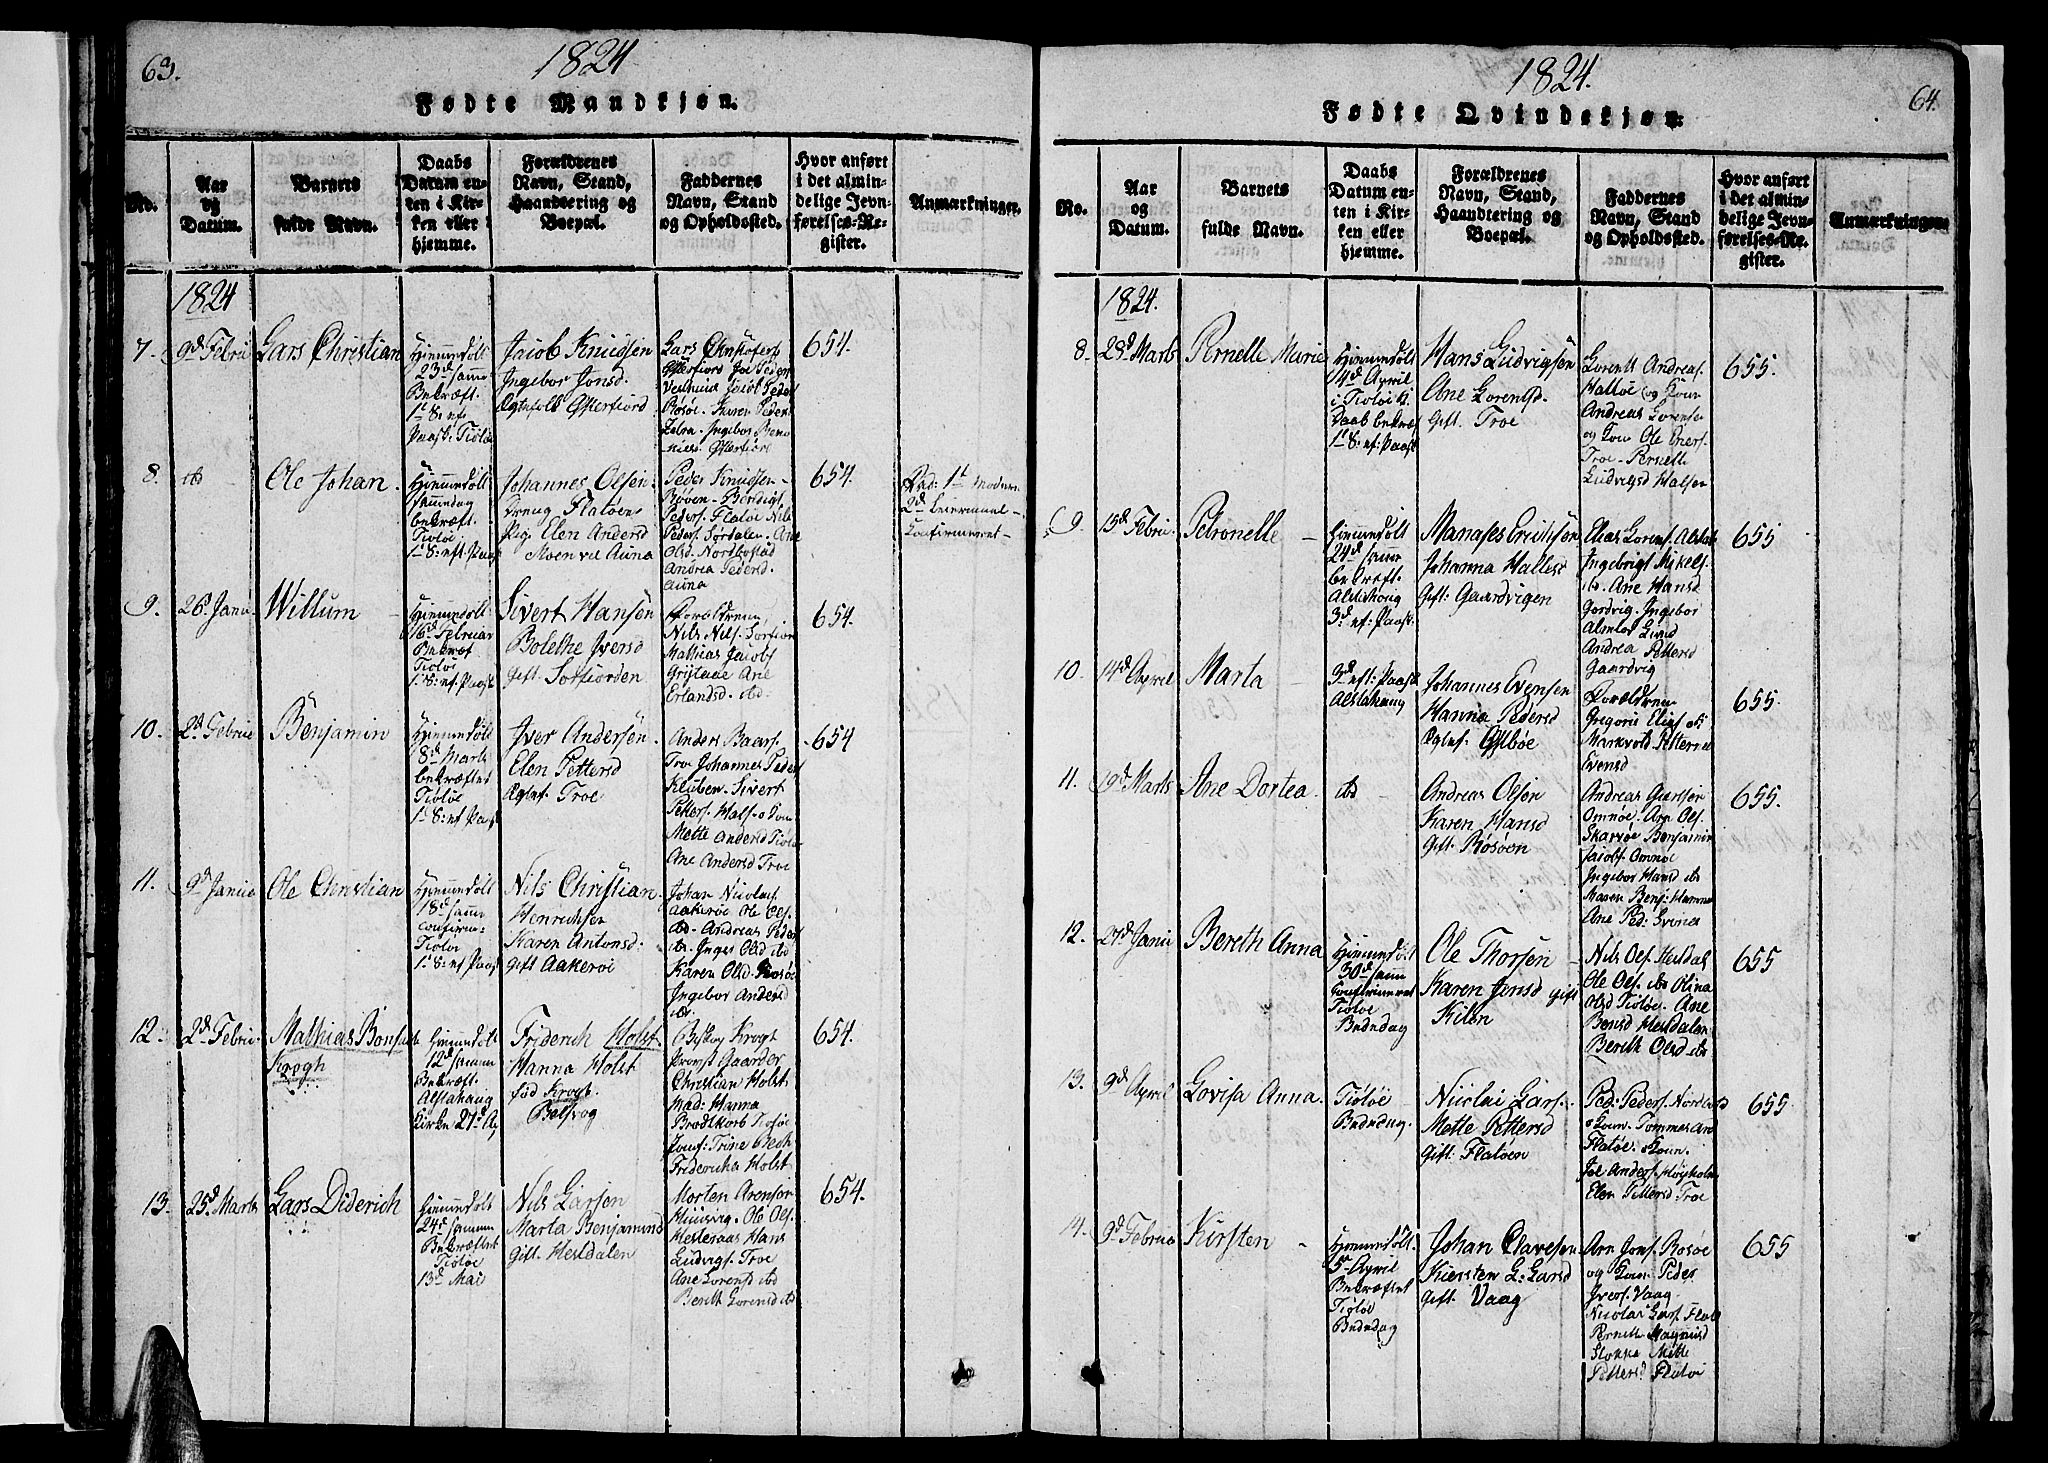 63.
1824
Fødte Mandkjøn.
No.
Aar
og
Datum.
Barnets
fulde Navn.
Daabs
Datum en-
ten i Kir-
ken eller
hjemme.
Forældrenes
Navn, Stand,
Haandtering og
Boepæl.
Faddernes
Navn, Stand
og Opholdssted.
Hvor anført
i det almin-
delige Jevn-
førelses-Re-
gister.
Anmærkninger.
1824
7.
9d Febru
Lars Christian
Hjemmedøbt
23d samme
Bekræft.
1t S: ef
Paask: Tiøtøe
Jacob Knudsen
Ingebor Jonsd.
Ægtefolk Østerfiord
654.
8.
Ole Johan.
Hjemmedøbt
samme dag
bekræft.
Tiøtøe
1t S: eft Paask
Johannes Olsen
Dreng Flatøen
Pig: Elen Andersd
Moen vel Auna
Peder Knudsen
Andrea Pedersd.
Auna
654.
Fad: 1t Moderen
2d Leiermaal
Confirmeret
9.
26d Janu.
Willum
Hjemmedøbt
16d Februar
Bekræf
Tiøtøe
1t S: ef Paask
Sivert Hansen
Bolethe Iversd
Gift. Sørfiorden
Forældrene
Nils Nils. Sørfior
Mathias Jacobs
Ane
Erlandsd. ibd
654.
10.
2d Februe
Benjamin
Hjemmedøbt
8d Marts
bekræftet
Tiøtøe
1t S: ef Paask
Iver Andersen
Elen Pettersd
Ægtef. Troe
Anders Baars.
Troe Johannes Peders
Klubben. Sivert
Petters. Hals. o Kone
Mette Andersd Tiøtøe
Ane Andersd Troe
654
11.
9d Janue
Ole Christian
Hjemmedøbt
18d samme
confirm:
Tiøtøe
1t S: ef Paask
Nils Christian
Henrichsen
Karen Antonsd.
gift Aakerøe
Johan Nicolas.
Aakerøe Ole Ols.
ibd. Andreas Peders
ibd. Inger Olsd ibd
Karen Olsd. Rosøe
Ingebor Andersd
ibd.
12.
2d Febru.
Mathias Bonsak
Krogh
Hjemmedøbt
12d samme
Bekræft.
Alstahaug
Kirke 27d A
Friderich Holst
Hanna Holst
fød Krogh.
Belsvog
Biskop Krogh
Provst Gaarder
Christian Holst
Mad: Hanna
Brodtkorb Tiøtøe
Jomf: Trine Bech
Fridericha Holst
654.
13.
25d Marts
Lars Diderich
Hjemmedøbt
24d samme
Bekræftet
Tiøtøe
13d Mai
Nils Larsen
Marta Benjamind
Gift Hestdalen
Morten Arensen
Huusvig. Ole Ols.
Hesteraas Hans
Ludvigs. Troe
Ane Lorensd ibd
Bereth Lorensd ibd
654.
64.
1824.
Fødte Qvindekjøn.
No.
Aar
og
Datum.
Barnets
fulde Navn.
Daabs
Datum en-
ten i Kir-
ken eller
hjemme.
Forældrenes
Navn, Stand,
Haandtering og
Boepæl.
Faddernes
Navn, Stand
og Opholdssted.
Hvor anført
i det almin-
delige Jevn-
førelses-Re-
gister.
Anmærkninger.
1824.
8.
28d Marts
Pernelle Marie
Hjemmedøbt
4d April
i Tiøtøe K.
Daab bekræf
1t S: ef: Paask
Hans Ludvigsen
Ane Lorentsd.
Gift. Troe
Lorentz Andreas.
Halsøe (og Kone
Andreas Lorense
og Kone Ole Ivers.
Troe Pernelle
Ludvigsd Halsen
655.
9.
15d Febru.
Petronelle
Hjemmedøbt
24d samme
bekræft.
Alstahoug
3d ef: Paask.
Manases Erichsen
Johanna Hallesd
Gift: Gaardvigen
Elias Lorens.
Ingebrigt Mikels.
ib. Ane Hansd
Gordvig. Ingebor
Andrea Pettersd
Gaardvig
655
10.
14d April
Marta
3d eft: Paask
Alstahaug
Johannes Evensen
Hanna Pedersd
Ægtef. Østbøe
Forældrene
Gregoris Elias. ok
Markvold. Petternel
Evensd
655.
11.
19d Marts
Ane Dortea.
ibd
Andreas Olsen
Karen Hansd
Gift. Rosøen
Andreas Gunsen
Omnøe. Arn Ols.
Skarvøe Benjamin
Jacobs. Omnøe
Ingebor Hansd ibd
Maren Benj: Hamnø
Ane Ped: Svines
655.
12.
27d Janu
Bereth Anna
Hjemmedøbt
30d samme
Confirmeret
Tiøtøe
Bededag
Ole Thorsen
Karen Jensd gift
Kilen
Nils Ols. Hestdal
Ole Ols. ibd Olina
Olsd Tiøtøe. Ane
Bensd Hestdalen
Bereth Olsd ibd
655
13.
9d April
Lovisa Anna.
Tiøtøe
Bededag.
Nicolai Lars.
Mette Pettersd
Gift. Flatøen
Ped: Peders. Nordbosd
o Kone. Tommes And
Flatøe. o Kone.
Joe Anders. Høyholm
Elen Pettersd Troe
655
14.
9d Februe
Kirsten
Hjemmedøbt.
5t April
Bekræftet
Tiøtøe
Bededag
Johan Clavesen
Kiersten L: Larsd
gift. Vaag
Arn Jons. Rosøe
og Kone Peder
Ivers. Vaag.
Nicolai Lars. Flatø
Pernelle Magnusd
Stokka Mette
Pettersd Flatøe
655